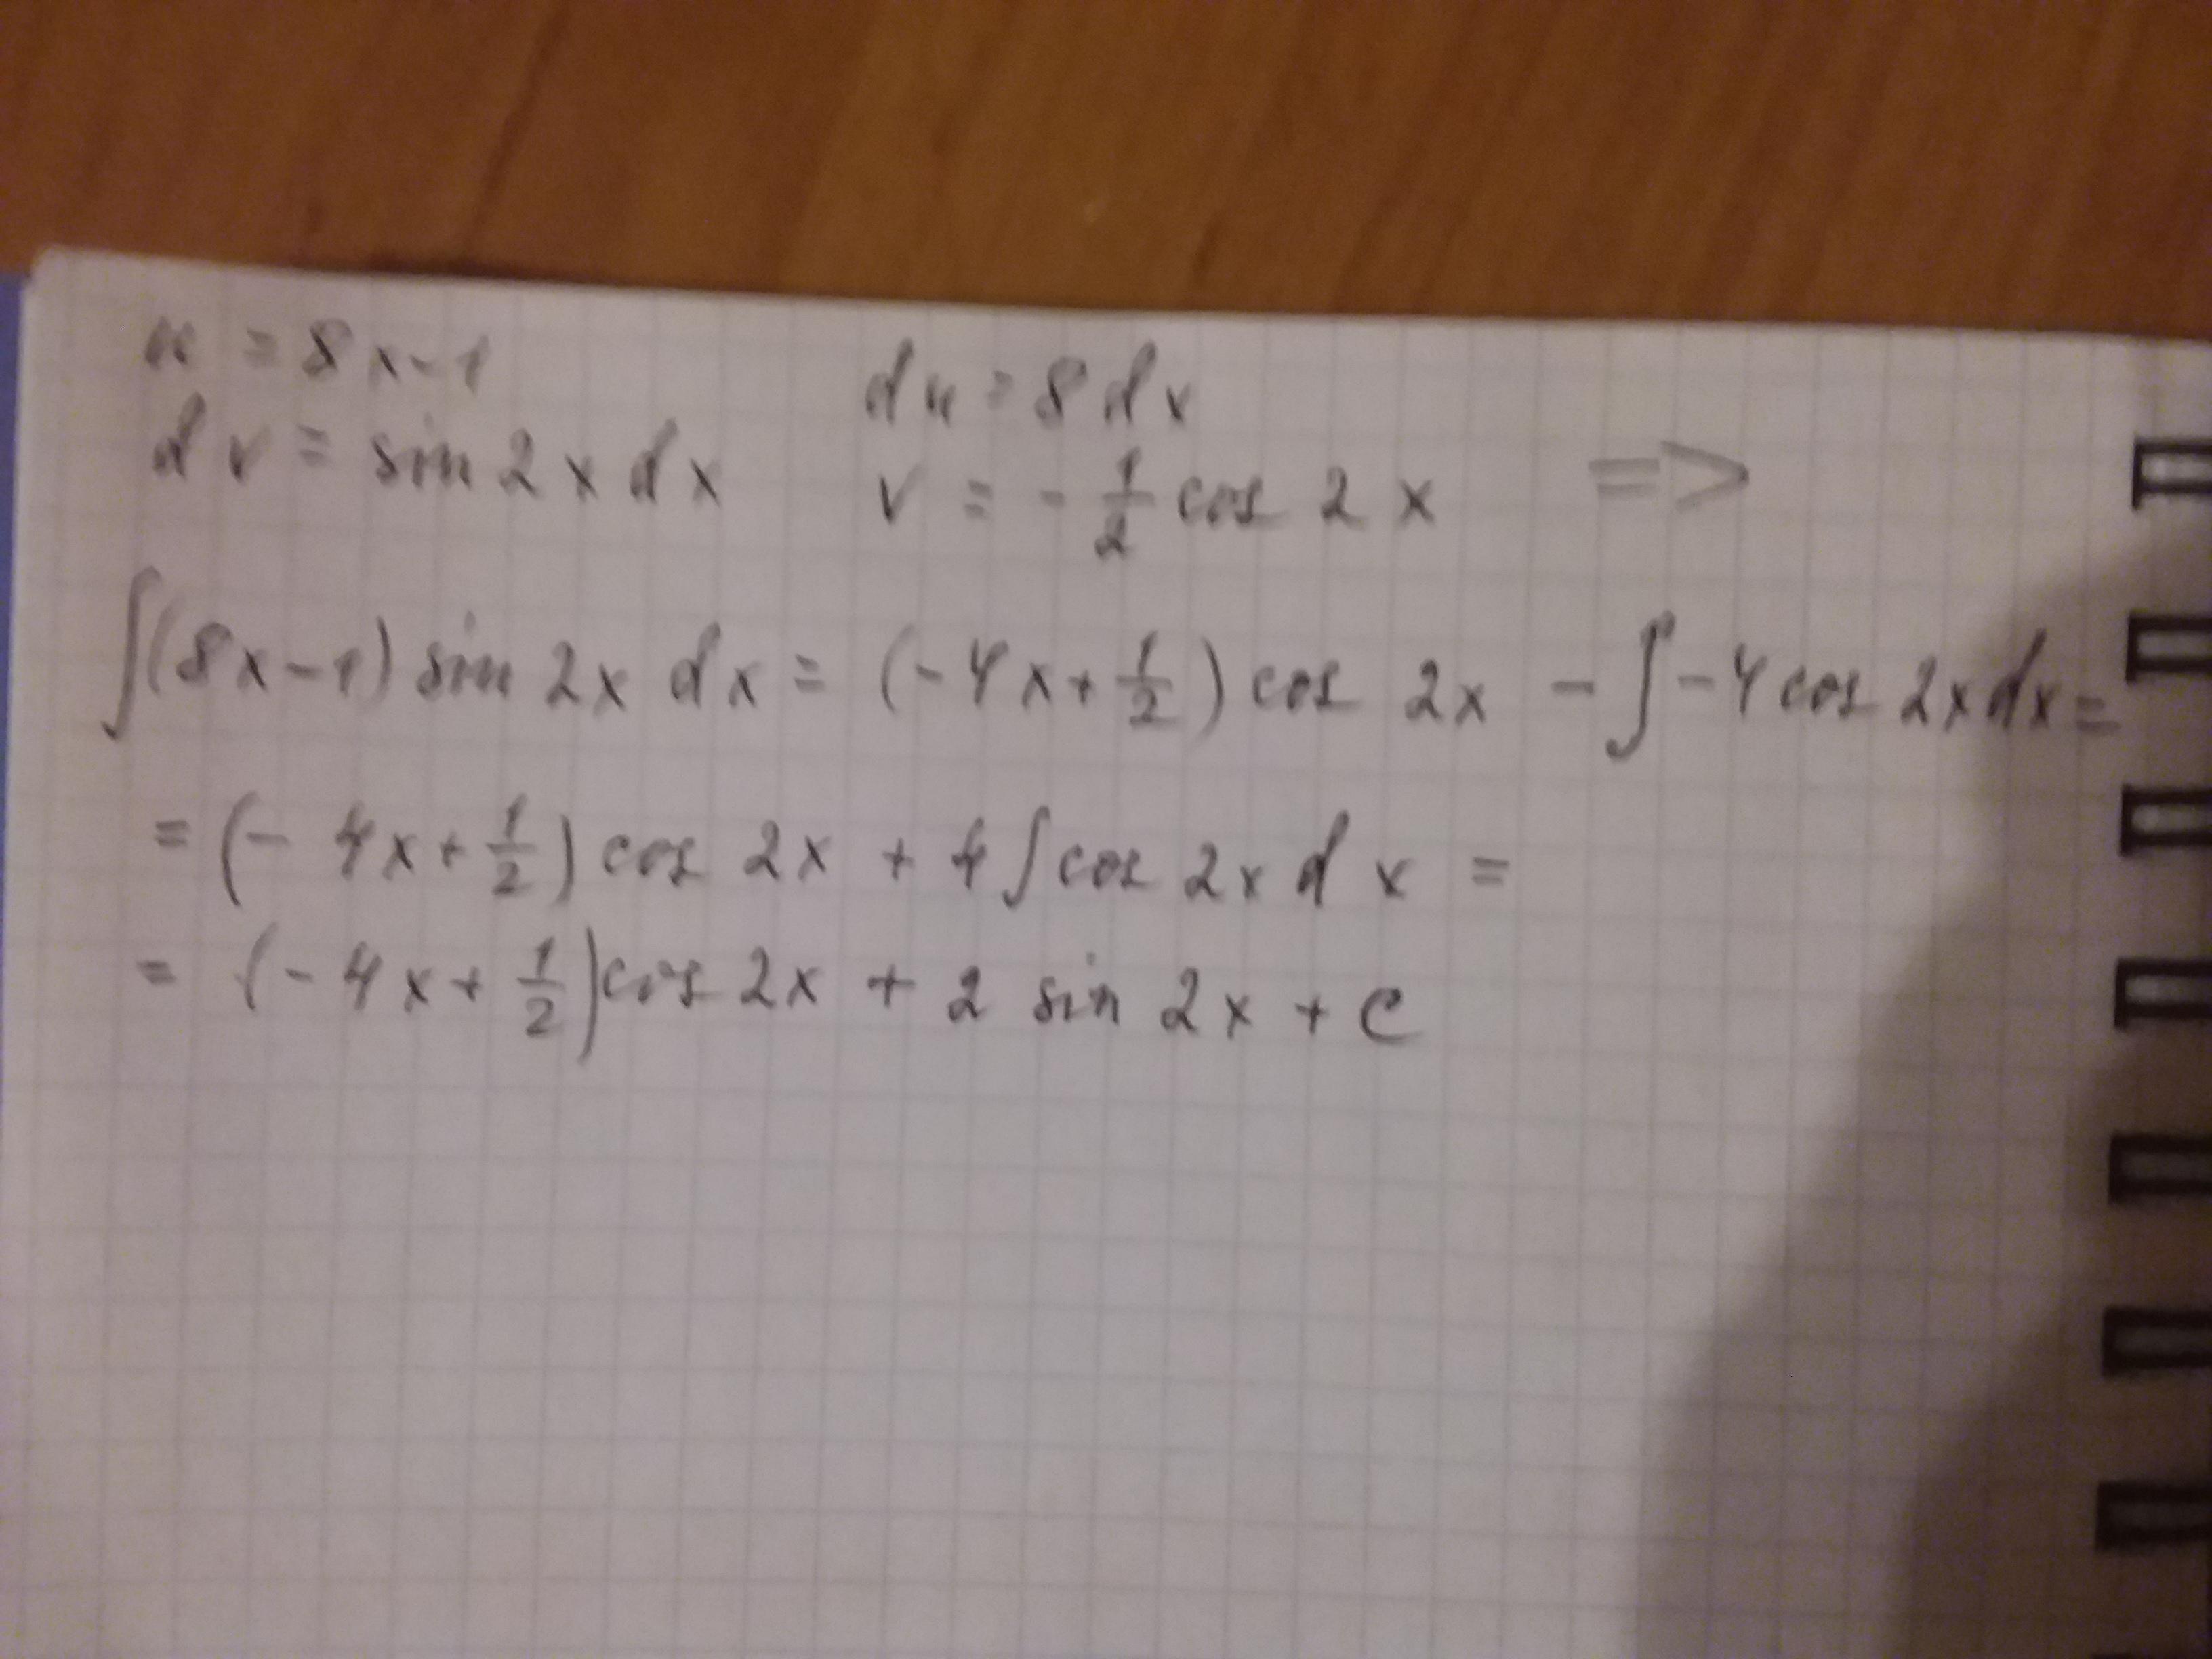 u = 8x-1 du = 8dx
dv = sin 2x dx v = -1/2 cos 2x =>
∫(8x-1) sin 2x dx = (-4x+1/2) cos 2x - ∫-4cos 2xdx =
= (-4x+1/2) cos 2x + 4∫cos 2x dx =
= (-4x+1/2)cos 2x + 2 sin 2x + c